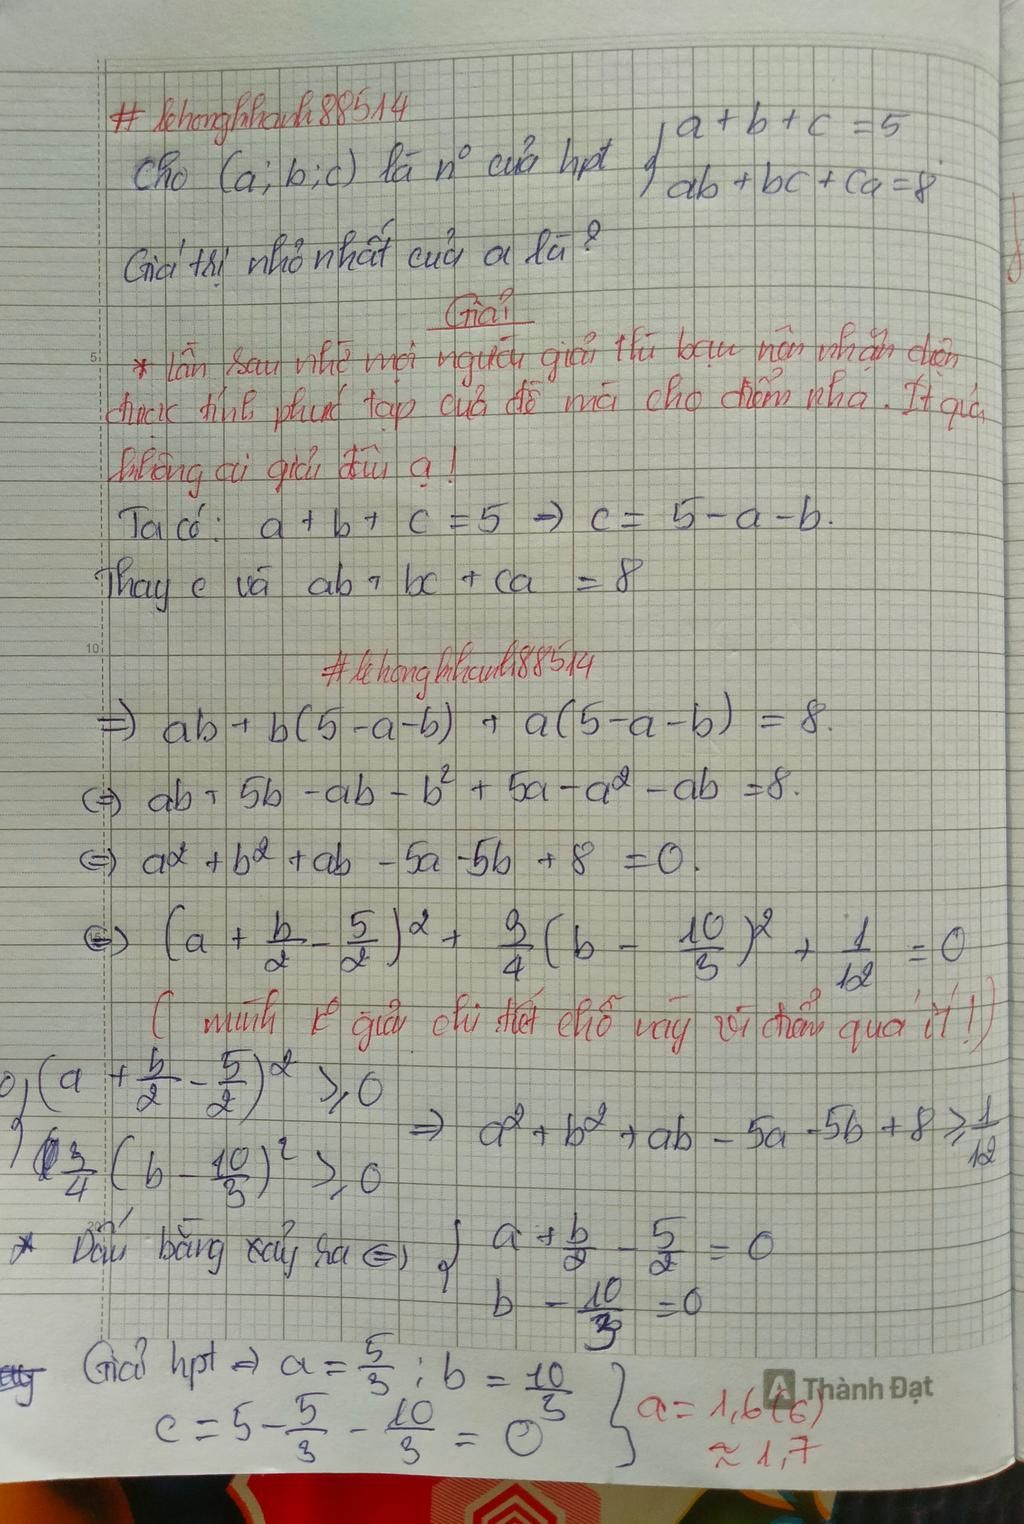 # lehongkhanh88514
Cho (a;b;c) là n° của hpt { a + b + c = 5
ab + bc + ca = 8
Giá trị nhỏ nhất của a là?
Giải
5
* Lần sau nhờ mọi người giải thì bạn nên nhận diện
được tính phức tạp của đề mà cho điểm nha. Ít quá
không ai giải đâu ạ!
Ta có: a + b + c = 5 → c = 5 - a - b.
Thay c và ab + bc + ca = 8
10
#lehongkhanh88514
=> ab + b(5 - a - b) + a(5 - a - b) = 8.
<=> ab + 5b - ab - b² + 5a - a² - ab = 8.
<=> a² + b² + ab - 5a - 5b + 8 = 0.
<=> (a + b/2 - 5/2)² + 3/4 (b - 10/3)² + 1/12 = 0
( mình k° giải chi tiết chỗ này vì điểm quá ít!)
(a + b/2 - 5/2)² ≥ 0
3/4 (b - 10/3)² ≥ 0
=> a² + b² + ab - 5a - 5b + 8 ≥ 1/12
* Dấu bằng xảy ra <=> { a + b/2 - 5/2 = 0
b - 10/3 = 0
Giải hpt => a = 5/3 ; b = 10/3
c = 5 - 5/3 - 10/3 = 0
} a = 1,6(6)
≈ 1,7
Thành Đạt